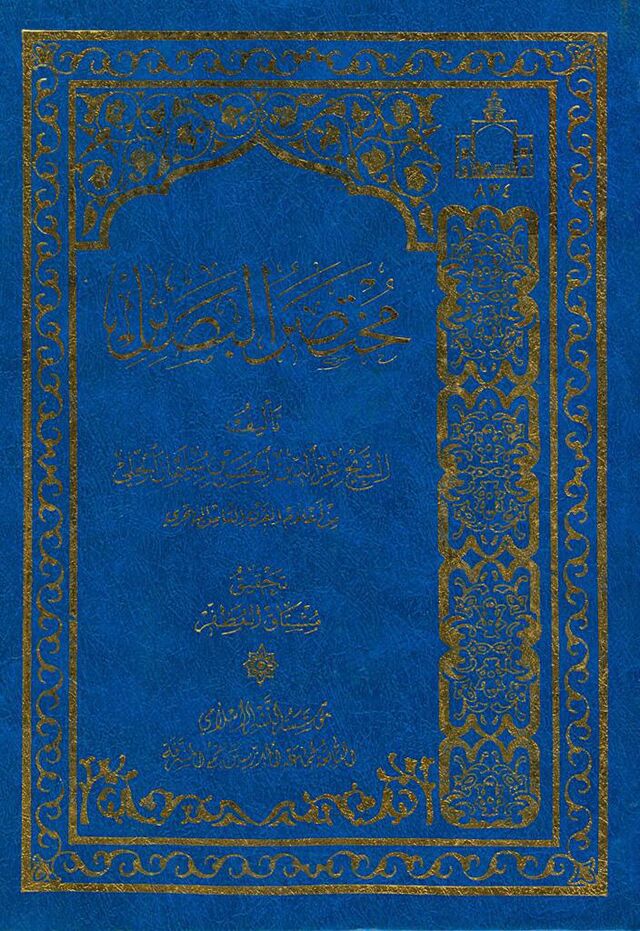 ٨٣٤
مختصر البصائر
تأليف
الشيخ عز الدين الحسن بن سليمان الحلي
من أعلام القرن الثامن الهجري
تحقيق
مشتاق المظفر
مؤسسة النشر الإسلامي
التابعة لجماعة المدرسين بقم المشرفة